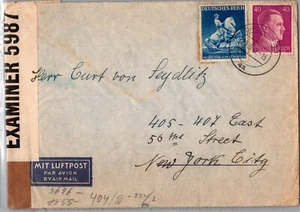 EXAMINER 5987
DEUTSCHES REICH
40 40
Herr Curt von Seydlitz
405 - 407 East
56 the Street
New York City
MIT LUFTPOST
PAR AVION
BY AIR MAIL